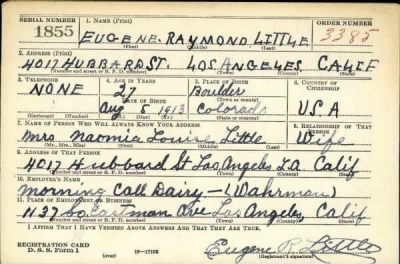 SERIAL NUMBER 1. NAME (Print) ORDER NUMBER
1855 EUGENE RAYMOND LITTLE 3385
(First) (Middle) (Last)
2. ADDRESS (Print)
4017 HUBBARD ST. LOS ANGELES CALIF
(Number and street or R. F. D. number) (Town) (County) (State)
3. TELEPHONE 4. AGE IN YEARS 5. PLACE OF BIRTH 6. COUNTRY OF CITIZENSHIP
NONE 27 Boulder
DATE OF BIRTH (Town or county)
Aug 5 1913 Colorado USA
(Exchange) (Number) (Mo.) (Day) (Yr.) (State or country)
7. NAME OF PERSON WHO WILL ALWAYS KNOW YOUR ADDRESS 8. RELATIONSHIP OF THAT PERSON
Mrs Louise Little Wife
(Mr., Mrs., Miss) (First) (Middle) (Last)
9. ADDRESS OF THAT PERSON
4017 Hubbard St Los Angeles LA Calif
(Number and street or R. F. D. number) (Town) (County) (State)
10. EMPLOYER'S NAME
Morning Call Dairy - (Wahrman)
11. PLACE OF EMPLOYMENT OR BUSINESS
1137 So Eastman Ave Los Angeles, Calif
(Number and street or R. F. D. number) (Town) (County) (State)
I AFFIRM THAT I HAVE VERIFIED ABOVE ANSWERS AND THAT THEY ARE TRUE.
REGISTRATION CARD
D. S. S. Form 1 (over) Eugene R. Little
(Registrant's signature)